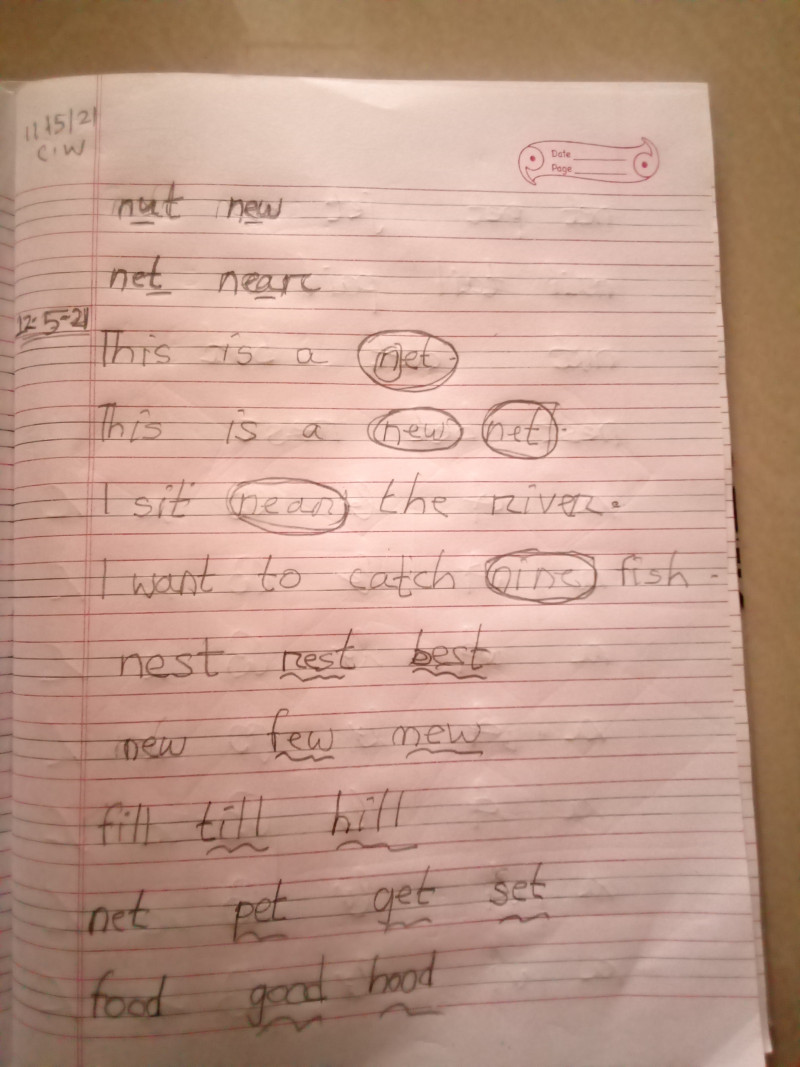 11/5/21
C.W
Date
Page
nut new
net near
12-5-21
This is a net.
This is a new net.
I sit near the river.
I want to catch nine fish.
nest rest best
new few mew
fill till hill
net pet get set
food good hood